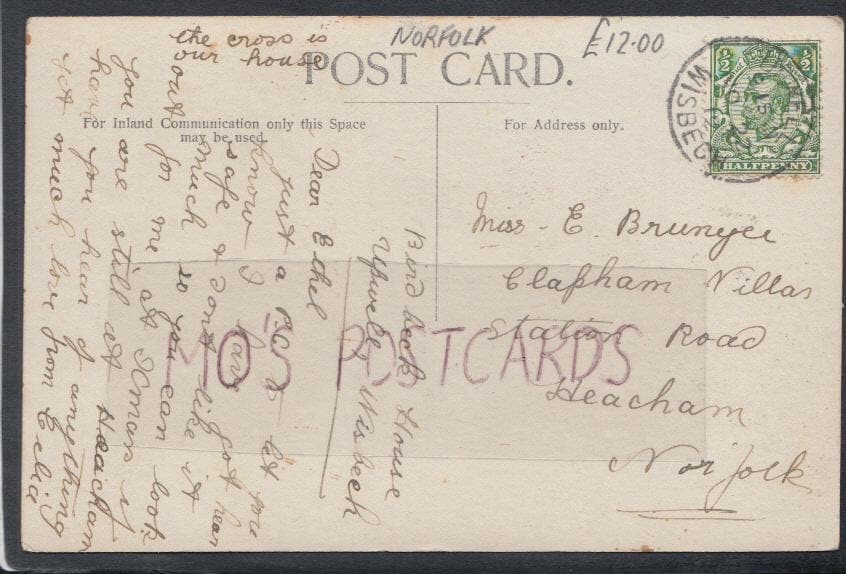 the cross is
our house
NORFOLK
£12.00
POST CARD.
For Inland Communication only this Space
may be used.
For Address only.
1/2 1/2
HALFPENNY
WISBECH
Bird beck House
Upwell, Wisbech
Dear Ethel
Just a P.C. to let you
know I have got here
safe & dont like it
much so you can look
out for me at Xmas if
you are still at Heacham
have you hear of anything
yet much love from
Miss E. Brunyee
Clapham Villas
Station Road
Heacham
Norfolk
MO'S POSTCARDS